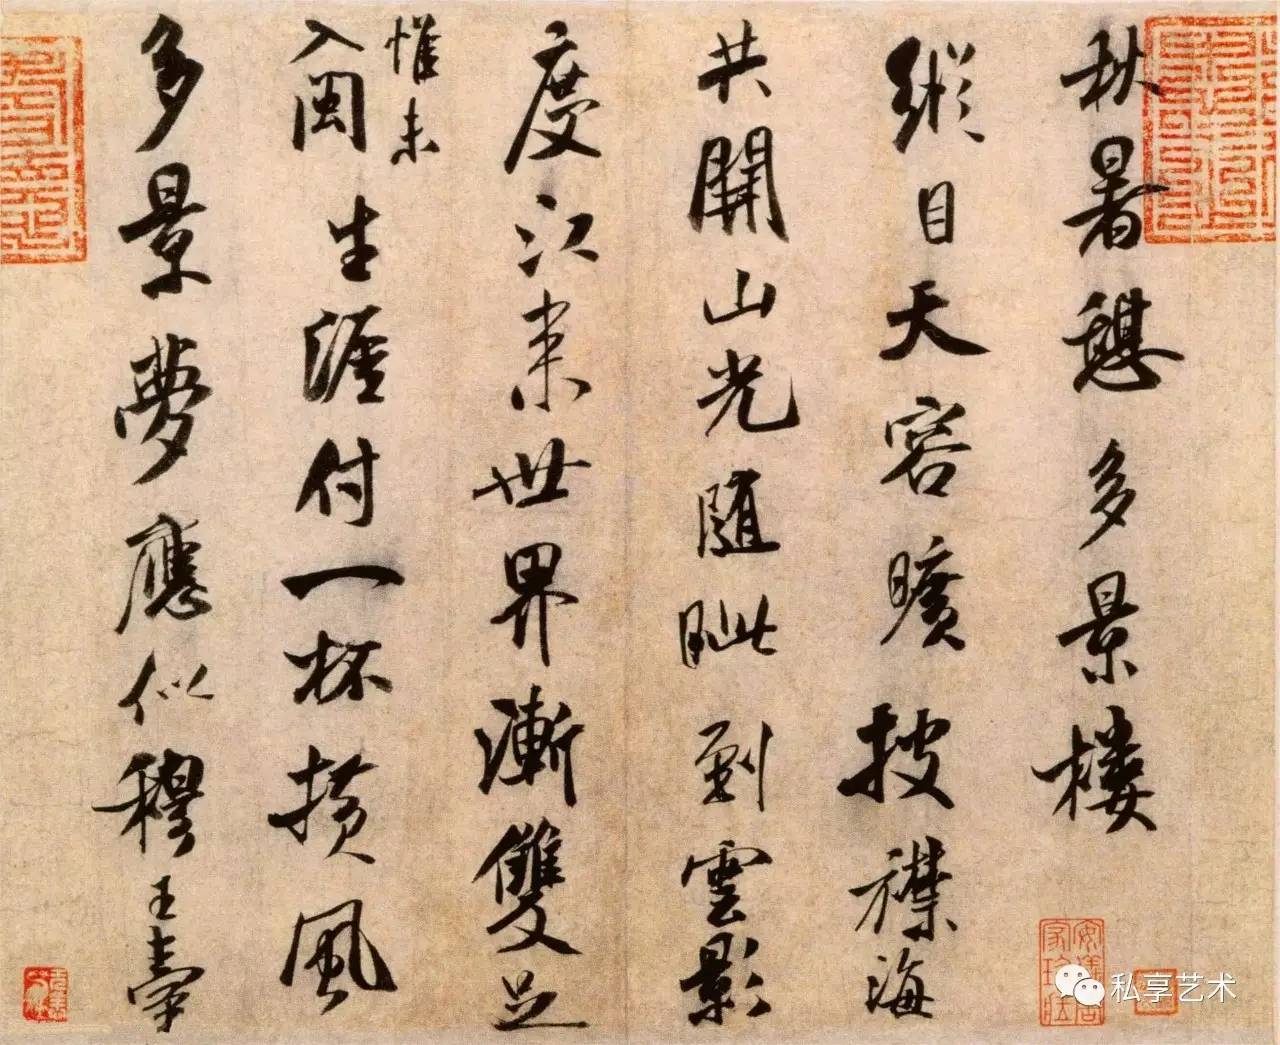 秋暑憩多景樓
縱目天容曠披襟海
共開山光隨眦到雲影
度江来世界漸雙足
惟未
入閩生涯付一杯横風
多景夢應似穆王臺
安儀周家珍藏
私享艺术